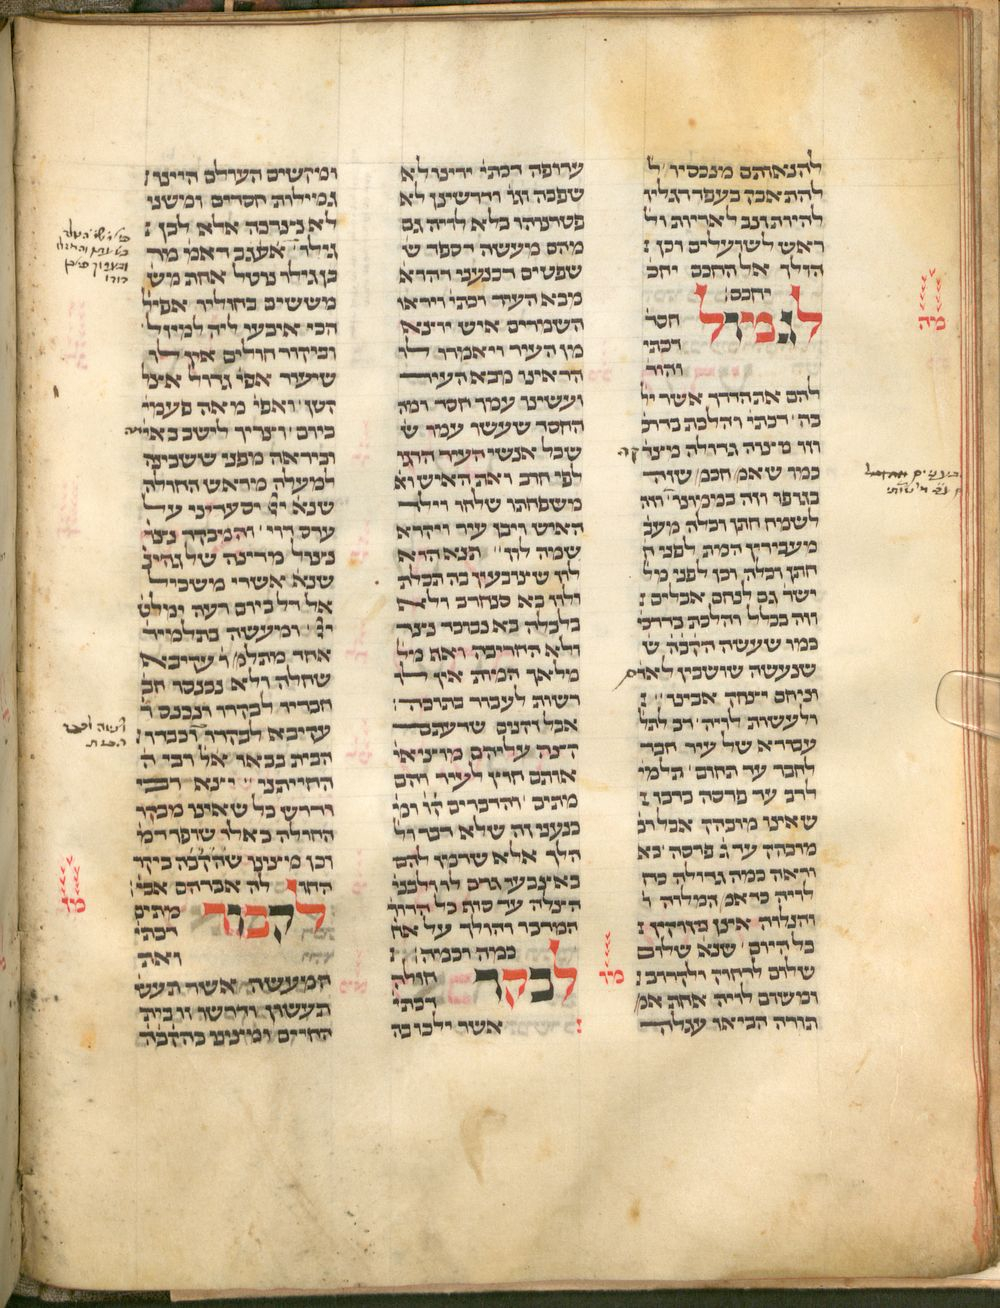 להנאותם מנכסיו ׳ל
להת אבק בעפר רגליו
להיות זנב לאריות ול׳
ראש לשועלים וכן׳
הולך אל החכם יחכ׳
יחכם׳
לגמול
חסד
דכתי׳
והוד׳
להם את הדרך אשר יל׳
בה׳ דכתי׳ והלכת בדרכ׳
וזו מיצוה גדולה מיצד׳
כמו שאמ׳ חכמ׳ שזיה׳
בגופו וזה בממונו׳ וזה
לשמח חתן וכלה מעב׳
מעבירין המת לפני ח׳
חתן וכלה וכן לפני מל׳
ישר׳ גם לנחם אבלים׳
וזה בכלל והלכת בדרכי׳
כמו שעשה הקב׳ה ש׳
שנעשה שושבין לאדם
וניחם יצחק אבינו׳
ולעשות לויה׳ רב לתל׳
עסרא של עיר חבר
לחבר עד תחום׳ תלמי׳
לרב עד פרסה ברבו׳
שאינו מובהק אבל רב׳
מובהק עד ג׳ פרסה׳ בא
וראה כמה גדולה כח׳
לויה כד אמ׳ המלוה ל׳
והנלוה אינן ניזוקין׳
כל היום׳ שנא׳ שלום
שלום לרחוק ולקרוב׳
ומשום לויה אחת אמ׳
תורה הביאו עגלה
ערופה דכתי׳ ידינו לא
שפכה וגו׳ ודרשינן לא
פטרניהו בלא לויה גם
מהם מעשה דספר ש׳
שפטים דכנעני ויהודא
מבא העיר דכתי׳ ויראו
השמרים איש יוצא
מן העיר ויאמרו לו
הראינו מבא העיר
ועשינו עמך חסד ומה
החסד שעשו עמו ש׳
שכל אנשי העיר הרגו
לפי חרב ואת האיש וא׳
משפחתו שלחו וילך
האיש ויבן עיר ויקרא
שמה לוז׳׳ תנא היא
לוז שצובעין בה תכלת
ולוז בא סנחרב ולא
בלבלה בא נבוכד ניצר
ולא החריבה ואף מל׳
מלאך המות אין לו
רשות לעבור בתוכה׳
אבל זקנים שדעתם
קצה עליהם מוציאי׳
אותם חוץ לעיר והם
מתים׳ והדברים קו׳ ומ׳
כנעני זה שלא דבר ול׳
הלך אלא שרמז להם
באצבעו גרם לו ולבני׳
הצלה עד סוף כל הדור׳
המדבר והולך על אח׳
כמה וכמה׳
לבקר
חולה
דכתי׳
אשר ילכו בה
ומקשים העולם היינו׳
גמילות חסדים ומשני׳
לא ניצרכה אלא לבן׳
גילו׳ אעגב דאמ׳ מר׳
בן גילו נוטל אחת מש׳
מששים בחוליו אפיל׳
הכי איבעי ליה למיזל׳
וביקור חולים אין לו
שיעור אפי׳ גדול אצל
הטן׳ ואפי׳ מאה פעמי׳
ביום׳ וצריך לישב באי׳
וביראה מפני ששכינה
למעלה מראש החולה
שנא׳ יי׳ יסעדיני על
ערש דוי׳ והמבקר ניצו׳
ניצול מדינה של גהינ׳
שנא׳ אשרי משכיל
אל דל ביום רעה ימלט׳
יי׳ ומעשה בתלמיד
אחד מתלמ׳ ר׳ עקיבא
שחלה ולא נכנסו חב׳
חבריו לבקרו ונכנס ר׳
עקיבא לבקרו וכבדו׳
הבית בבואו אל רבי ה׳
החייתני יצא רבי
ודרש כל שאינו מבקר
החולה כאלו שופך דמ׳
וכן מצינו שהקב׳ה ביקר
החו׳ לה אברהם אבי׳
לקבור
מתים
דכתי׳
ואת
המעשה אשר תעש׳
תעשון ודרשו זו בית
החיים ומצינו בהקב׳ה